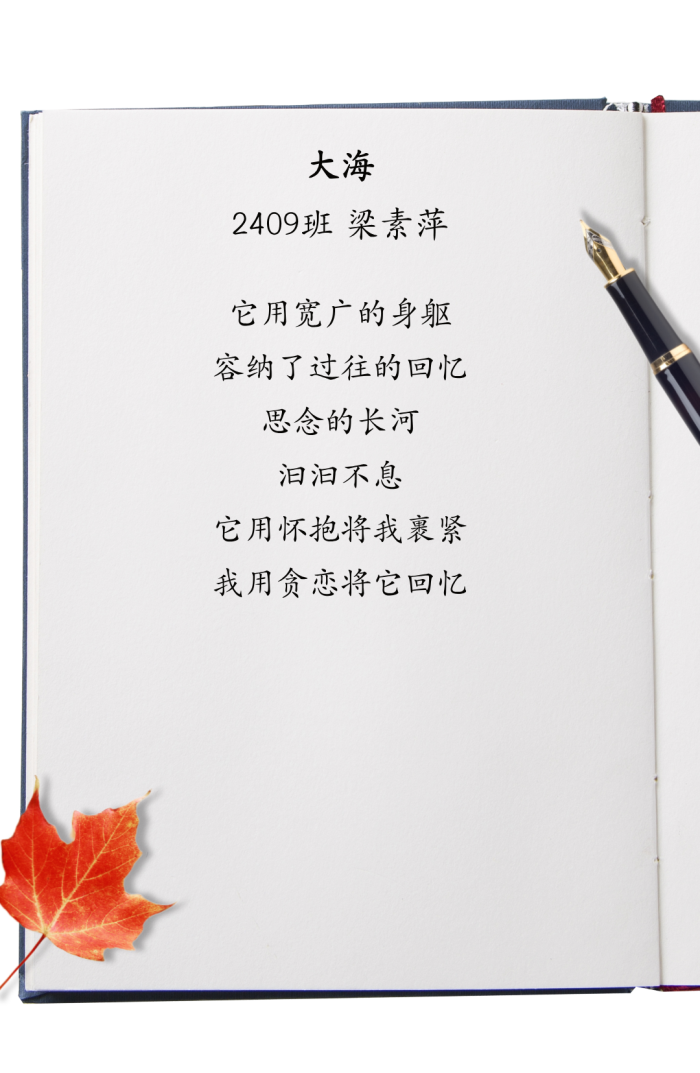 大海
2409班 梁素萍
它用宽广的身躯
容纳了过往的回忆
思念的长河
汩汩不息
它用怀抱将我裹紧
我用贪恋将它回忆